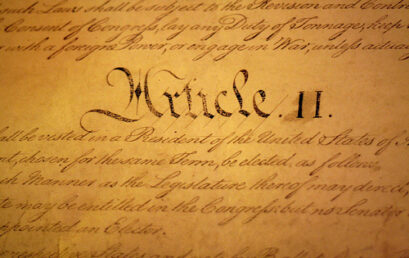 such Laws shall be subject to the Revision and Contro
Consent of Congress, lay any Duty of Tonnage, keep
with a foreign Power, or engage in War, unless actua
Article. II.
all be vested in a President of the United States of A
nt, chosen for the same Term, be elected, as follows
ch Manner as the Legislature thereof may direct,
te may be entitled in the Congress: but no Senator
appointed an Elector.
States, and vote by Ballot